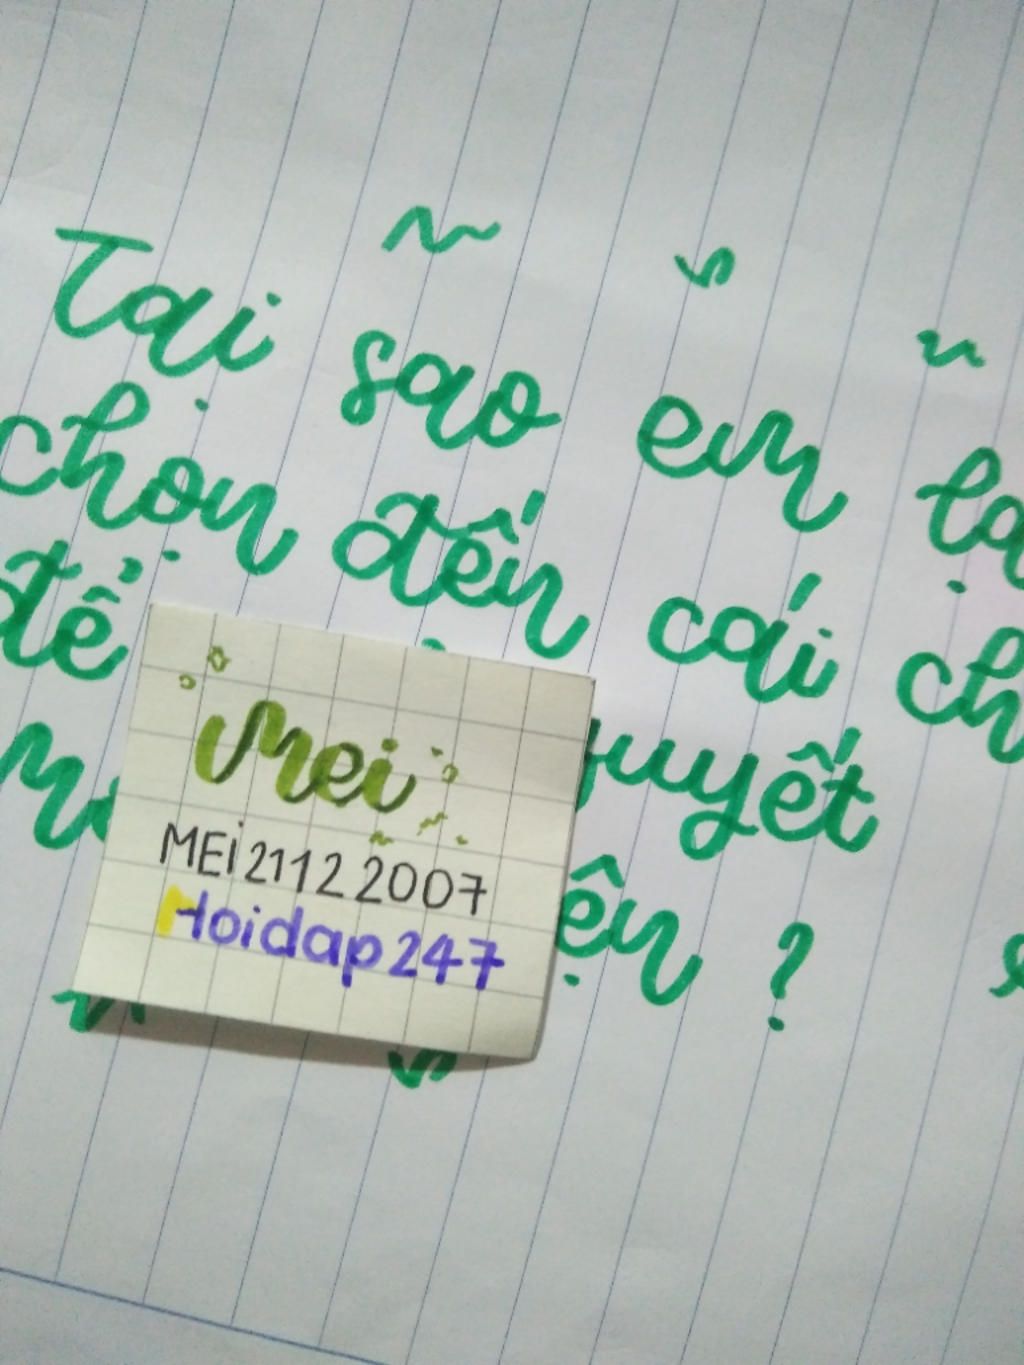 Tại sao em
chọn đến cái
để quyết
ện ?
Mei
MEi21122007
Hoidap247